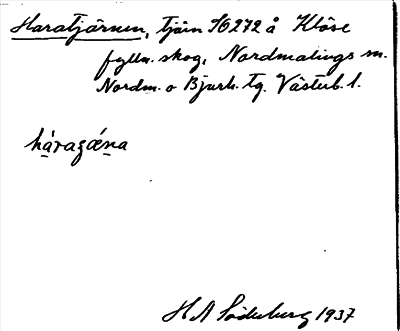 Haratjärnen, tjärn SO 272 å Klöse
fylln. skog, Nordmalings sn.
Nordm. o Bjurh. tg. Västerb. l.
háragǽna
H A Söderberg 1937